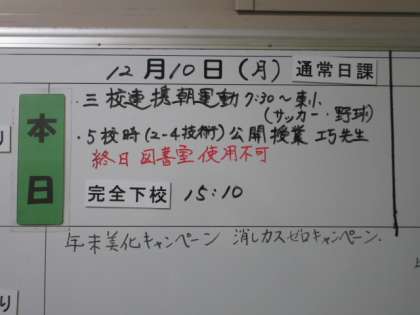 12月10日(月) 通常日課
本日
・三校連携朝運動 7:30～東小
(サッカー・野球)
・5校時(2-4技術)公開授業 巧先生
終日図書室使用不可
完全下校 15:10
年末美化キャンペーン 消しカスゼロキャンペーン.
り